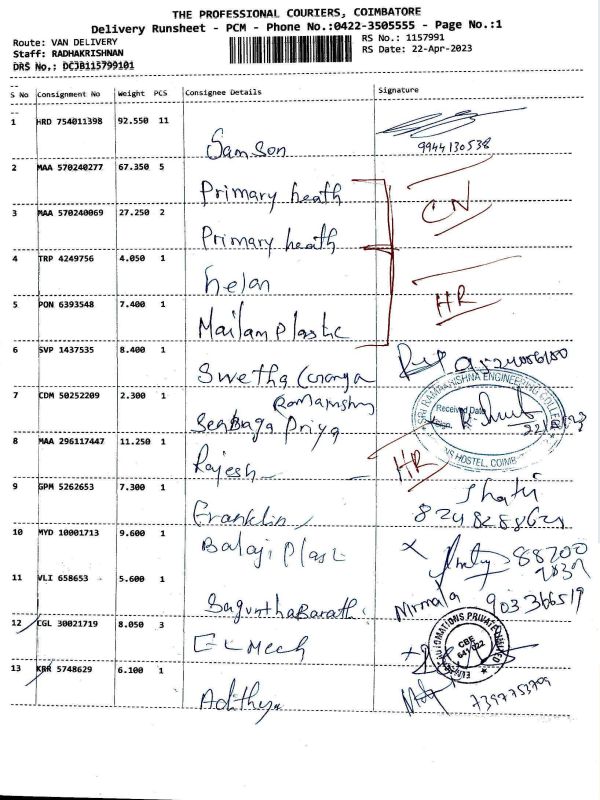 THE PROFESSIONAL COURIERS, COIMBATORE
Delivery Runsheet - PCM - Phone No.:0422-3505555 - Page No.:1
Route: VAN DELIVERY
RS No.: 1157991
Staff: RADHAKRISHNAN
RS Date: 22-Apr-2023
DRS No.: DCJB115799101
S No Consignment No Weight PCS Consignee Details Signature
1 HRD 754011398 92.550 11
Samson 9944130538
2 MAA 570240277 67.350 5
Primary heath
CN
3 MAA 570240069 27.250 2
Primary heath
4 TRP 4249756 4.050 1
helan
HR
5 PON 6393548 7.400 1
Mailam Plastic
6 SVP 1437535 8.400 1
Swetha
7 CDM 50252209 2.300 1
SRI RAMAKRISHNA ENGINEERING COLLEGE
Received Date
Sign.
Priya
8 MAA 296117447 11.250 1
HOSTEL, COIMB
Rajesh
HR
9 GPM 5262653 7.300 1
Franklin
10 MYD 10001713 9.600 1
Balaji Plast 88700
11 VLI 658653 5.600 1
Nirmala 903366519
12 CGL 30021719 8.050 3
AUTOMATIONS PRIVATE LIMITED
CBE
641 022
GL Mech
13 KRR 5748629 6.100 1
Adithya 7397753709